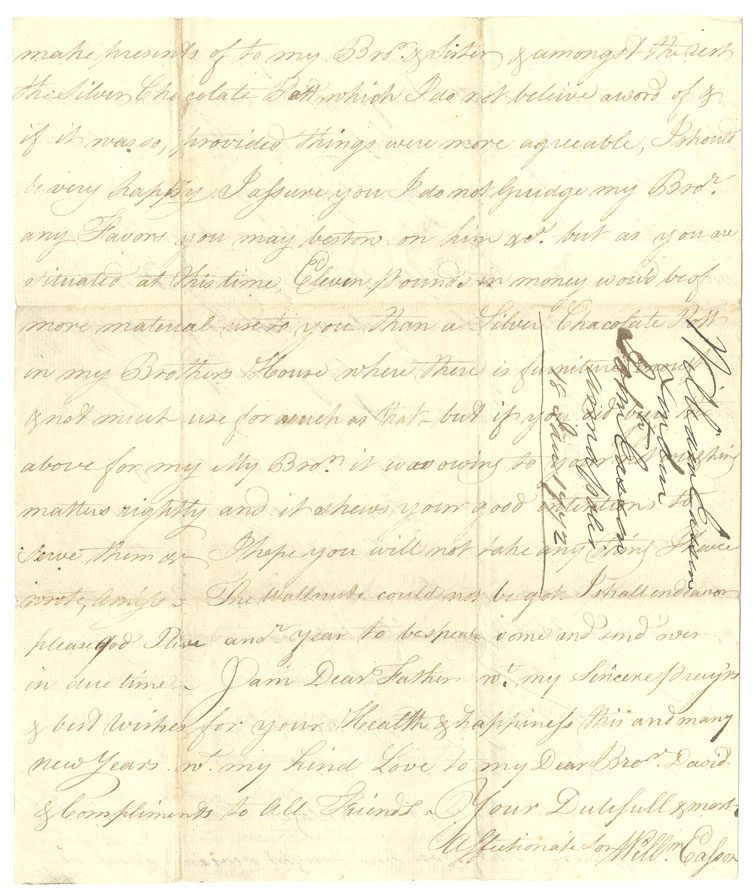 make presents of to my Bror. & Sister & amongst the rest
the Silver Chacolate Pott, which I do not beleive a word of &
if it was so, provided things were more agreeable, I should
be very happy, I assure you I do not Grudge my Bror.
any Favors you may bestow on him &c. but as you are
situated at this time, Eleven pounds in money wou'd be of
more material use to you than a Silver Chacolate Pott
in my Brothers House where there is furniture
& not much use for such as that - but if you did buy the
above for my Bror. it was owing to your not
matters rightly and it shews your good intentions to
serve them &c I hope you will not take any thing I have
wrote, Amiss - The Wallnuts could not be got I shall endeavor
please god I live anor. year to bespeak some and send over
in due time - I am Dear Father wt. my Sincere pray'rs
& best Wishes for your Health & happiness this and many
new Years. wt. my kind Love to my Dear Bror. David
& Compliments to All Friends - Your Dutifull & most
Affectionate Son Willm. Easson
William Easson
London
to
John Easson
18 1772